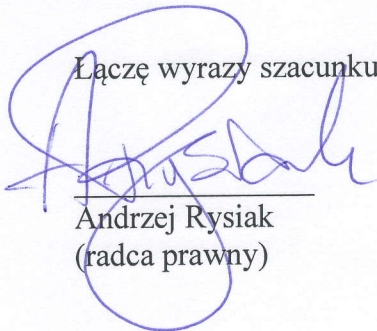 Łączę wyrazy szacunku
Rysiak
Andrzej Rysiak
(radca prawny)